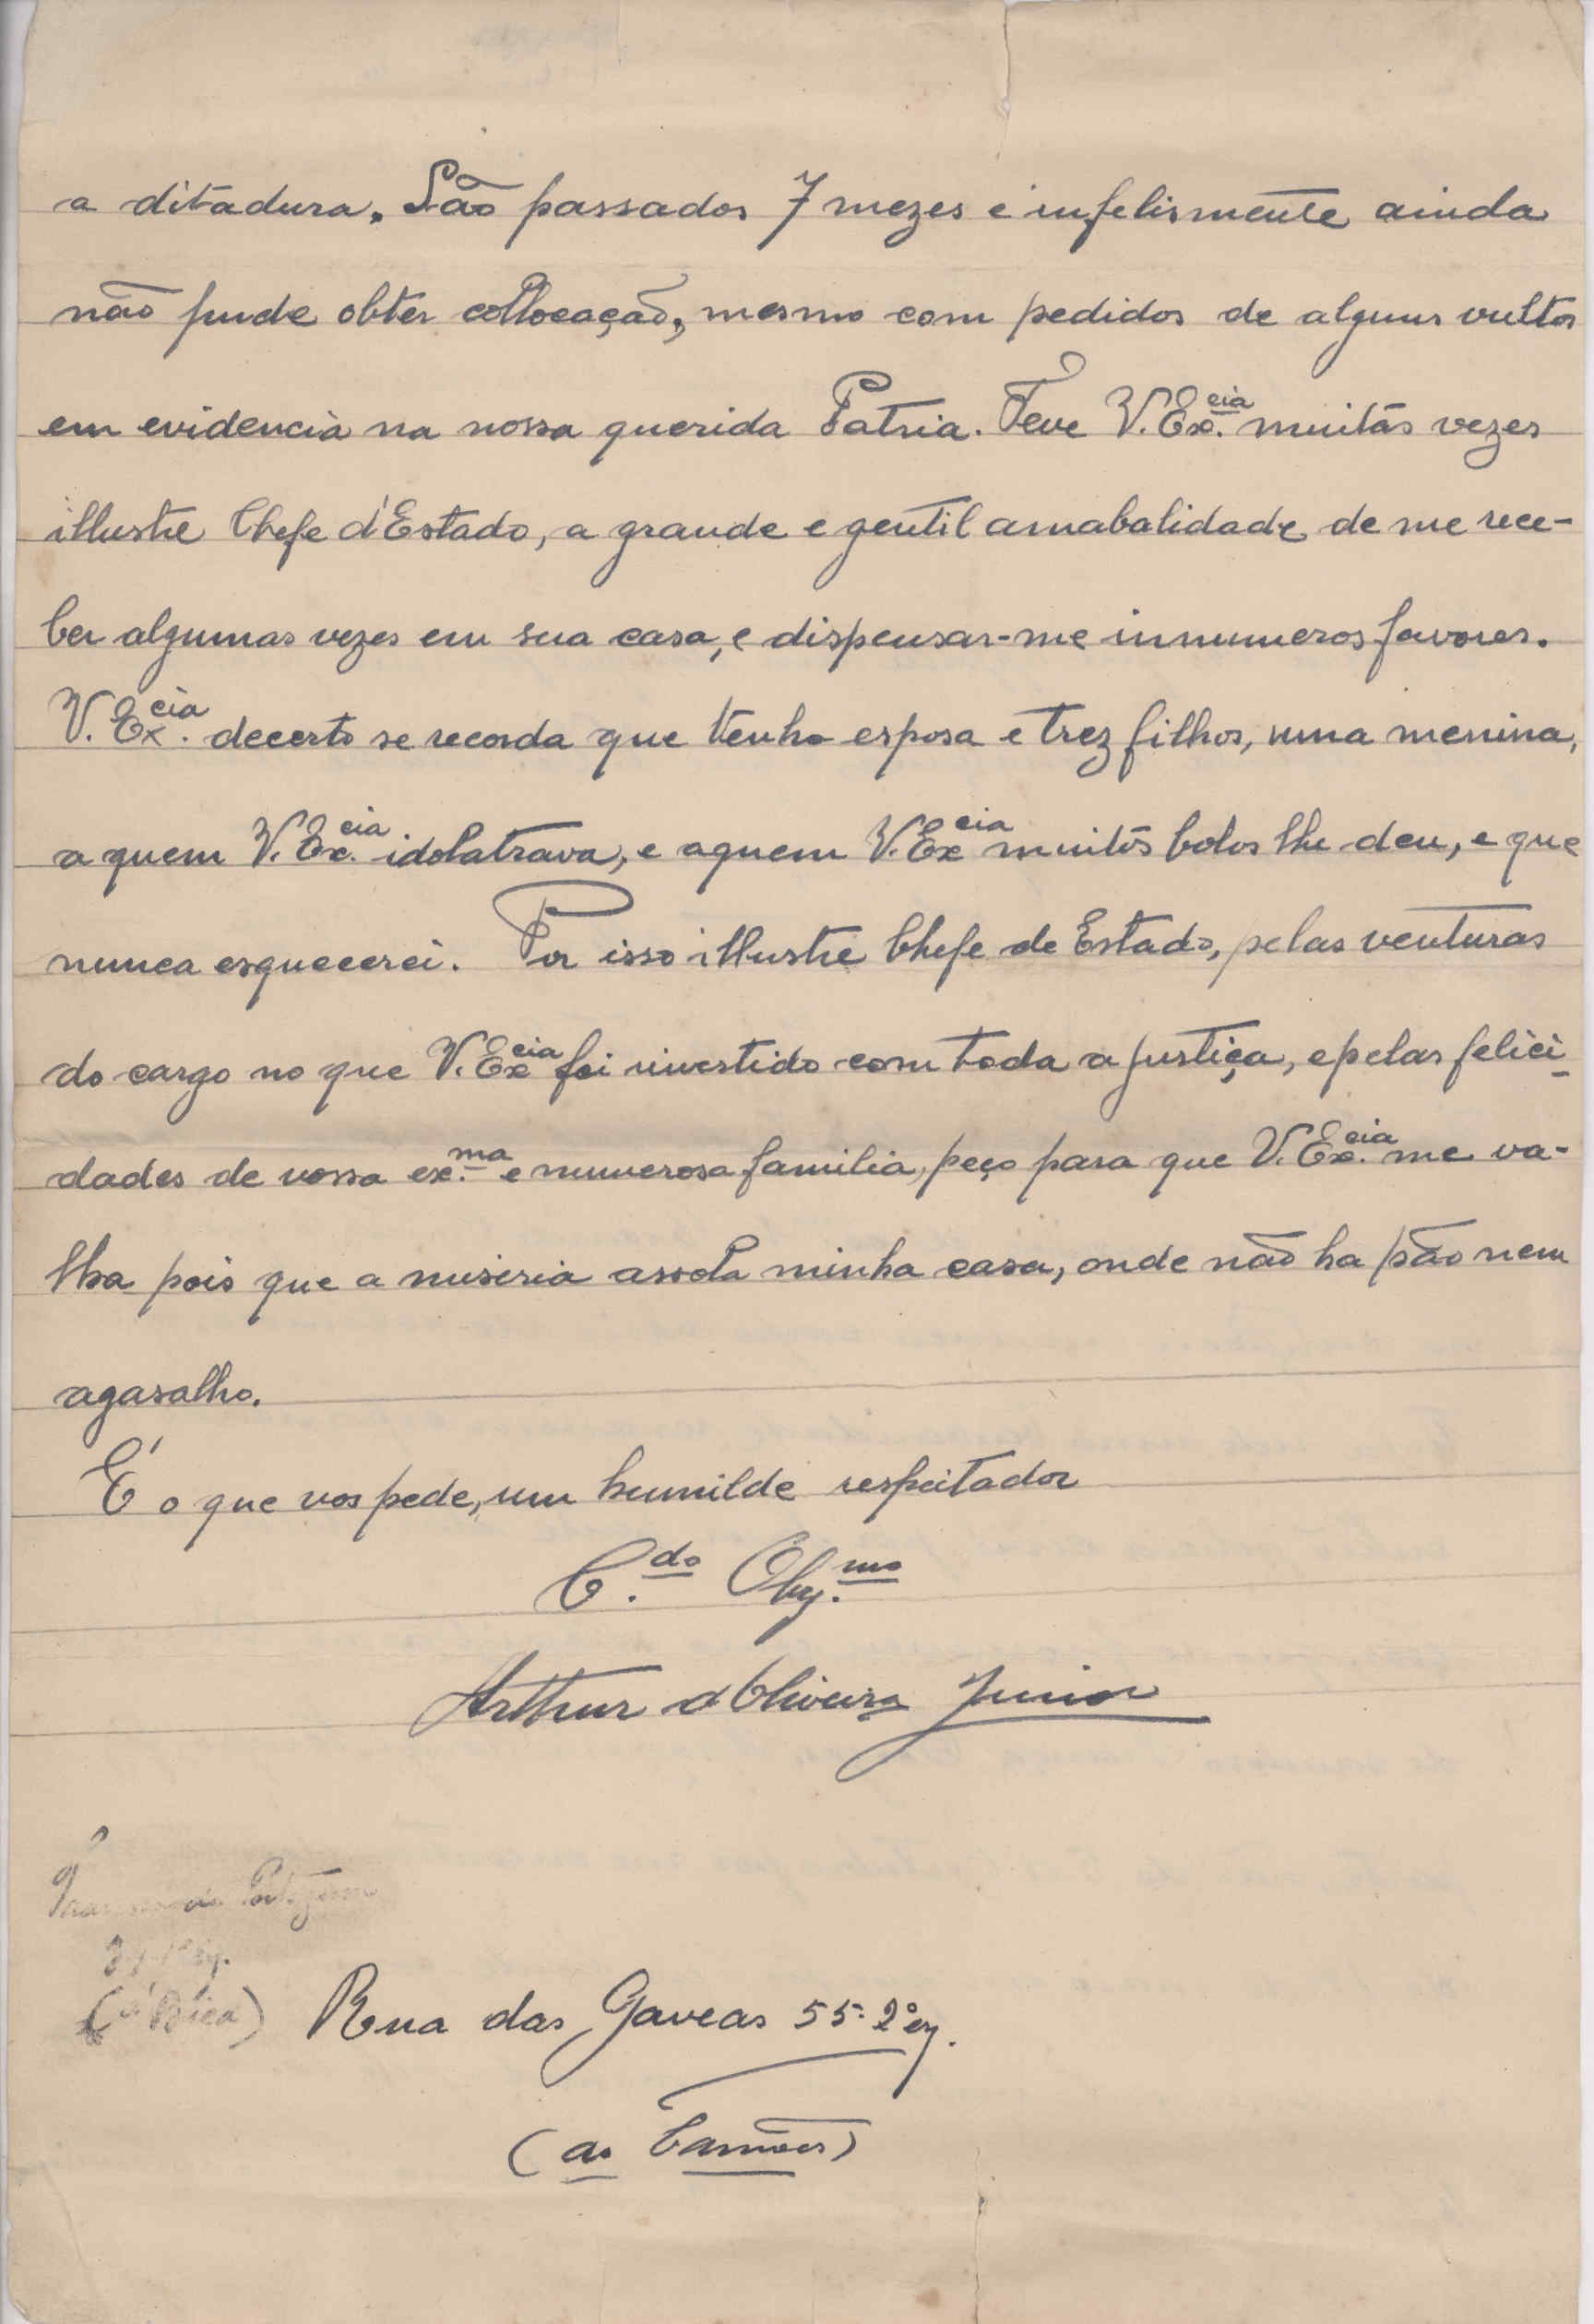 a ditadura. São passados 7 mezes e infelismente ainda
não pude obter collocação, mesmo com pedidos de alguns vultos
em evidencia na nossa querida Patria. Teve V. Ex.cia muitas vezes
illustre Chefe d'Estado, a grande e gentil amabalidade de me rece-
ber algumas vezes em sua casa, e dispensar-me innumeros favores.
V. Ex.cia decerto se recorda que tenho esposa e trez filhos, uma menina,
a quem V. Ex.cia idolatrava, e aquem V. Ex.cia muitos bolos lhe deu, e que
nunca esquecerei. Por isso illustre Chefe de Estado, pelas venturas
do cargo no que V. Ex.cia foi investido com toda a justiça, e pelas felici-
dades de vossa ex.ma e numerosa familia, peço para que V. Ex.cia me va-
lha pois que a miseria assola minha casa, onde não ha pão nem
agasalho.
É o que vos pede, um humilde respeitador
C.do Obg.mo
Arthur d'Oliveira Junior
(á Bica) Rua das Gaveas 55-2º
(ao Camões)